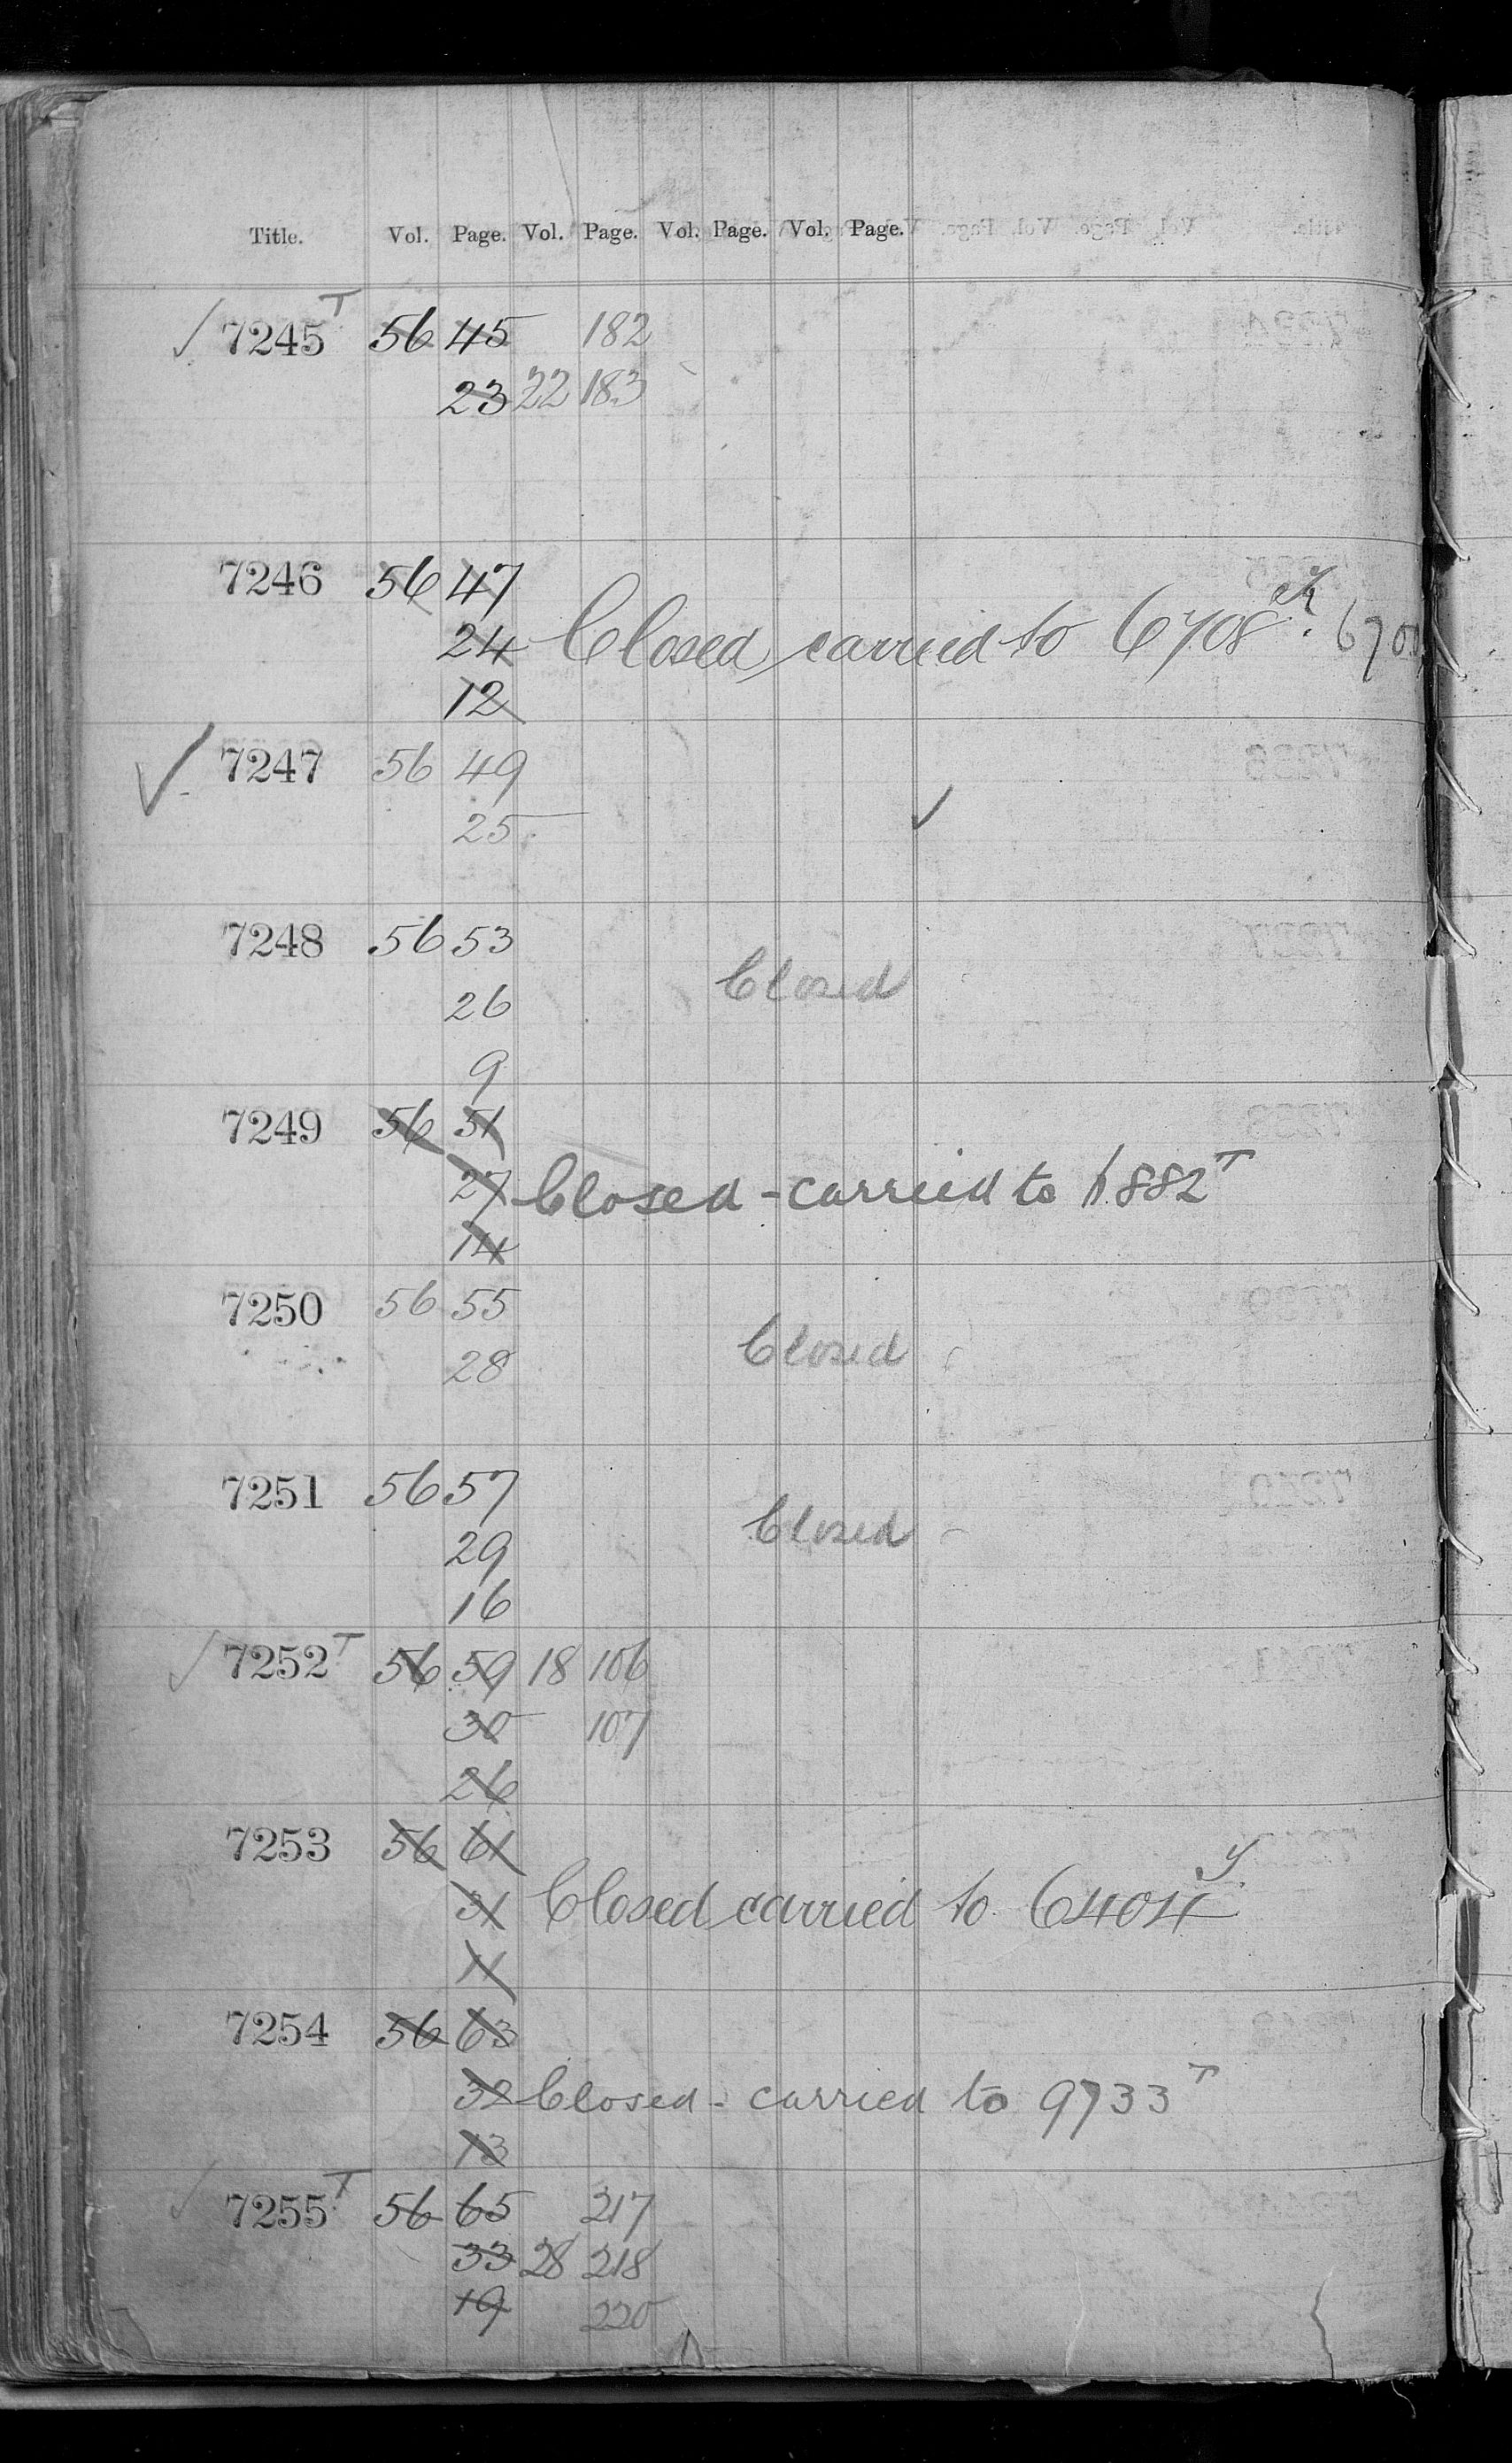 Title. Vol. Page. Vol. Page. Vol. Page. Vol. Page.
✓ 7245 T 56 45 182
23 22 183
7246 56 47
24 Closed carried to 6708
12
✓ 7247 56 49
25 ✓
7248 56 53
Closed
26
9
7249 56 51
27 Closed - carried to 6882 T
14
7250 56 55
Closed
28
7251 56 57
Closed
29
16
✓ 7252 T 56 59 18 106
30 107
26
7253 56 61
31 Closed carried to 6404
11
7254 56 63
32 Closed - carried to 9733 T
13
✓ 7255 T 56 65 217
33 28 218
19 220